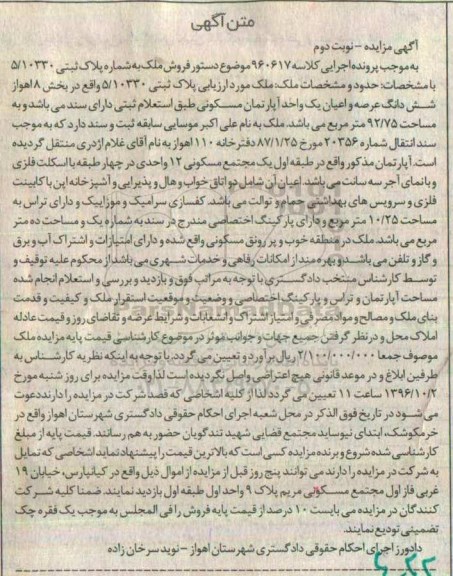 متن آگهی
آگهی مزایده - نوبت دوم
به موجب پرونده اجرایی کلاسه ۹۶۰۶۱۷ موضوع دستور فروش ملک به شماره پلاک ثبتی ۵/۱۰۳۳۰
با مشخصات: حدود و مشخصات ملک: ملک مورد ارزیابی پلاک ثبتی ۵/۱۰۳۳۰ واقع در بخش ۸ اهواز
شش دانگ عرصه و اعیان یک واحد آپارتمان مسکونی طبق استعلام ثبتی دارای سند می باشد و به
مساحت ۹۲/۷۵ متر مربع می باشد. ملک به نام علی اکبر موسایی سابقه ثبت و سند دارد که به موجب
سند انتقال شماره ۲۰۳۵۶ مورخ ۸۷/۱/۲۵ دفترخانه ۱۱۰ اهواز به نام آقای غلام اژدری منتقل گردیده
است. آپارتمان مذکور واقع در طبقه اول یک مجتمع مسکونی ۱۲ واحدی در چهار طبقه با اسکلت فلزی
و با نمای آجر سه سانت می باشد. اعیان آن شامل دو اتاق خواب و هال و پذیرایی و آشپزخانه اپن با کابینت
فلزی و سرویس های بهداشتی حمام و توالت می باشد. کفسازی سرامیک و موزاییک و دارای تراس به
مساحت ۱۰/۲۵ متر مربع و دارای پارکینگ اختصاصی مندرج در سند به شماره یک و مساحت ده متر
مربع می باشد. ملک در منطقه خوب و پر رونق مسکونی واقع شده و دارای امتیازات و اشتراک آب و برق
و گاز و تلفن می باشد و بهره مند از امکانات رفاهی و خدمات شهری می باشد از محکوم علیه توقیف و
توسط کارشناس منتخب دادگستری با توجه به مراتب فوق و بازدید و بررسی و استعلام انجام شده
مساحت آپارتمان و تراس و پارکینگ اختصاصی و وضعیت و موقعیت استقرار ملک و کیفیت و قدمت
بنای ملک و مصالح و مواد مصرفی و امتیاز اشتراک و انشعابات و شرایط عرضه و تقاضای روز و قیمت عادله
املاک محل و در نظر گرفتن جمیع جهات و جوانب موثر در موضوع کارشناسی قیمت پایه مزایده ملک
موصوف جمعا ۲/۱۰۰/۰۰۰/۰۰۰ ریال برآورد و تعیین می گردد. با توجه به اینکه نظریه کارشناس به
طرفین ابلاغ و در موعد قانونی هیچ اعتراضی واصل نگردیده است لذا وقت مزایده برای روز شنبه مورخ
۱۳۹۶/۱۰/۲ ساعت ۱۱ تعیین می گردد لذا از کلیه اشخاصی که قصد شرکت در مزایده را دارند دعوت
می شود در تاریخ فوق الذکر در محل شعبه اجرای احکام حقوقی دادگستری شهرستان اهواز واقع در
خرمکوشک، ابتدای نیوساید مجتمع قضایی شهید تندگویان حضور به هم رسانند. قیمت پایه از مبلغ
کارشناسی شده شروع و برنده مزایده کسی است که بالاترین قیمت را پیشنهاد نماید اشخاصی که تمایل
به شرکت در مزایده را دارند می توانند پنج روز قبل از مزایده از اموال ذیل واقع در کیانپارس، خیابان ۱۹
غربی فاز اول مجتمع مسکونی مریم پلاک ۹ واحد اول طبقه اول بازدید نمایند. ضمنا کلیه شرکت
کنندگان در مزایده می بایست ۱۰ درصد از قیمت پایه فروش را فی المجلس به موجب یک فقره چک
تضمینی تودیع نمایند.
دادورز اجرای احکام حقوقی دادگستری شهرستان اهواز - نوید سرخان زاده